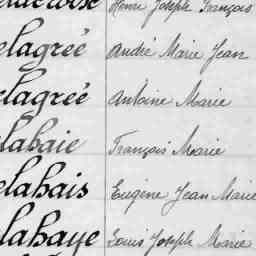 Henri Joseph François
elagrée André Marie Jean
elagrée Antoine Marie
elahaie François Marie
elahais Eugène Jean Marie
elahaye Louis Joseph Marie